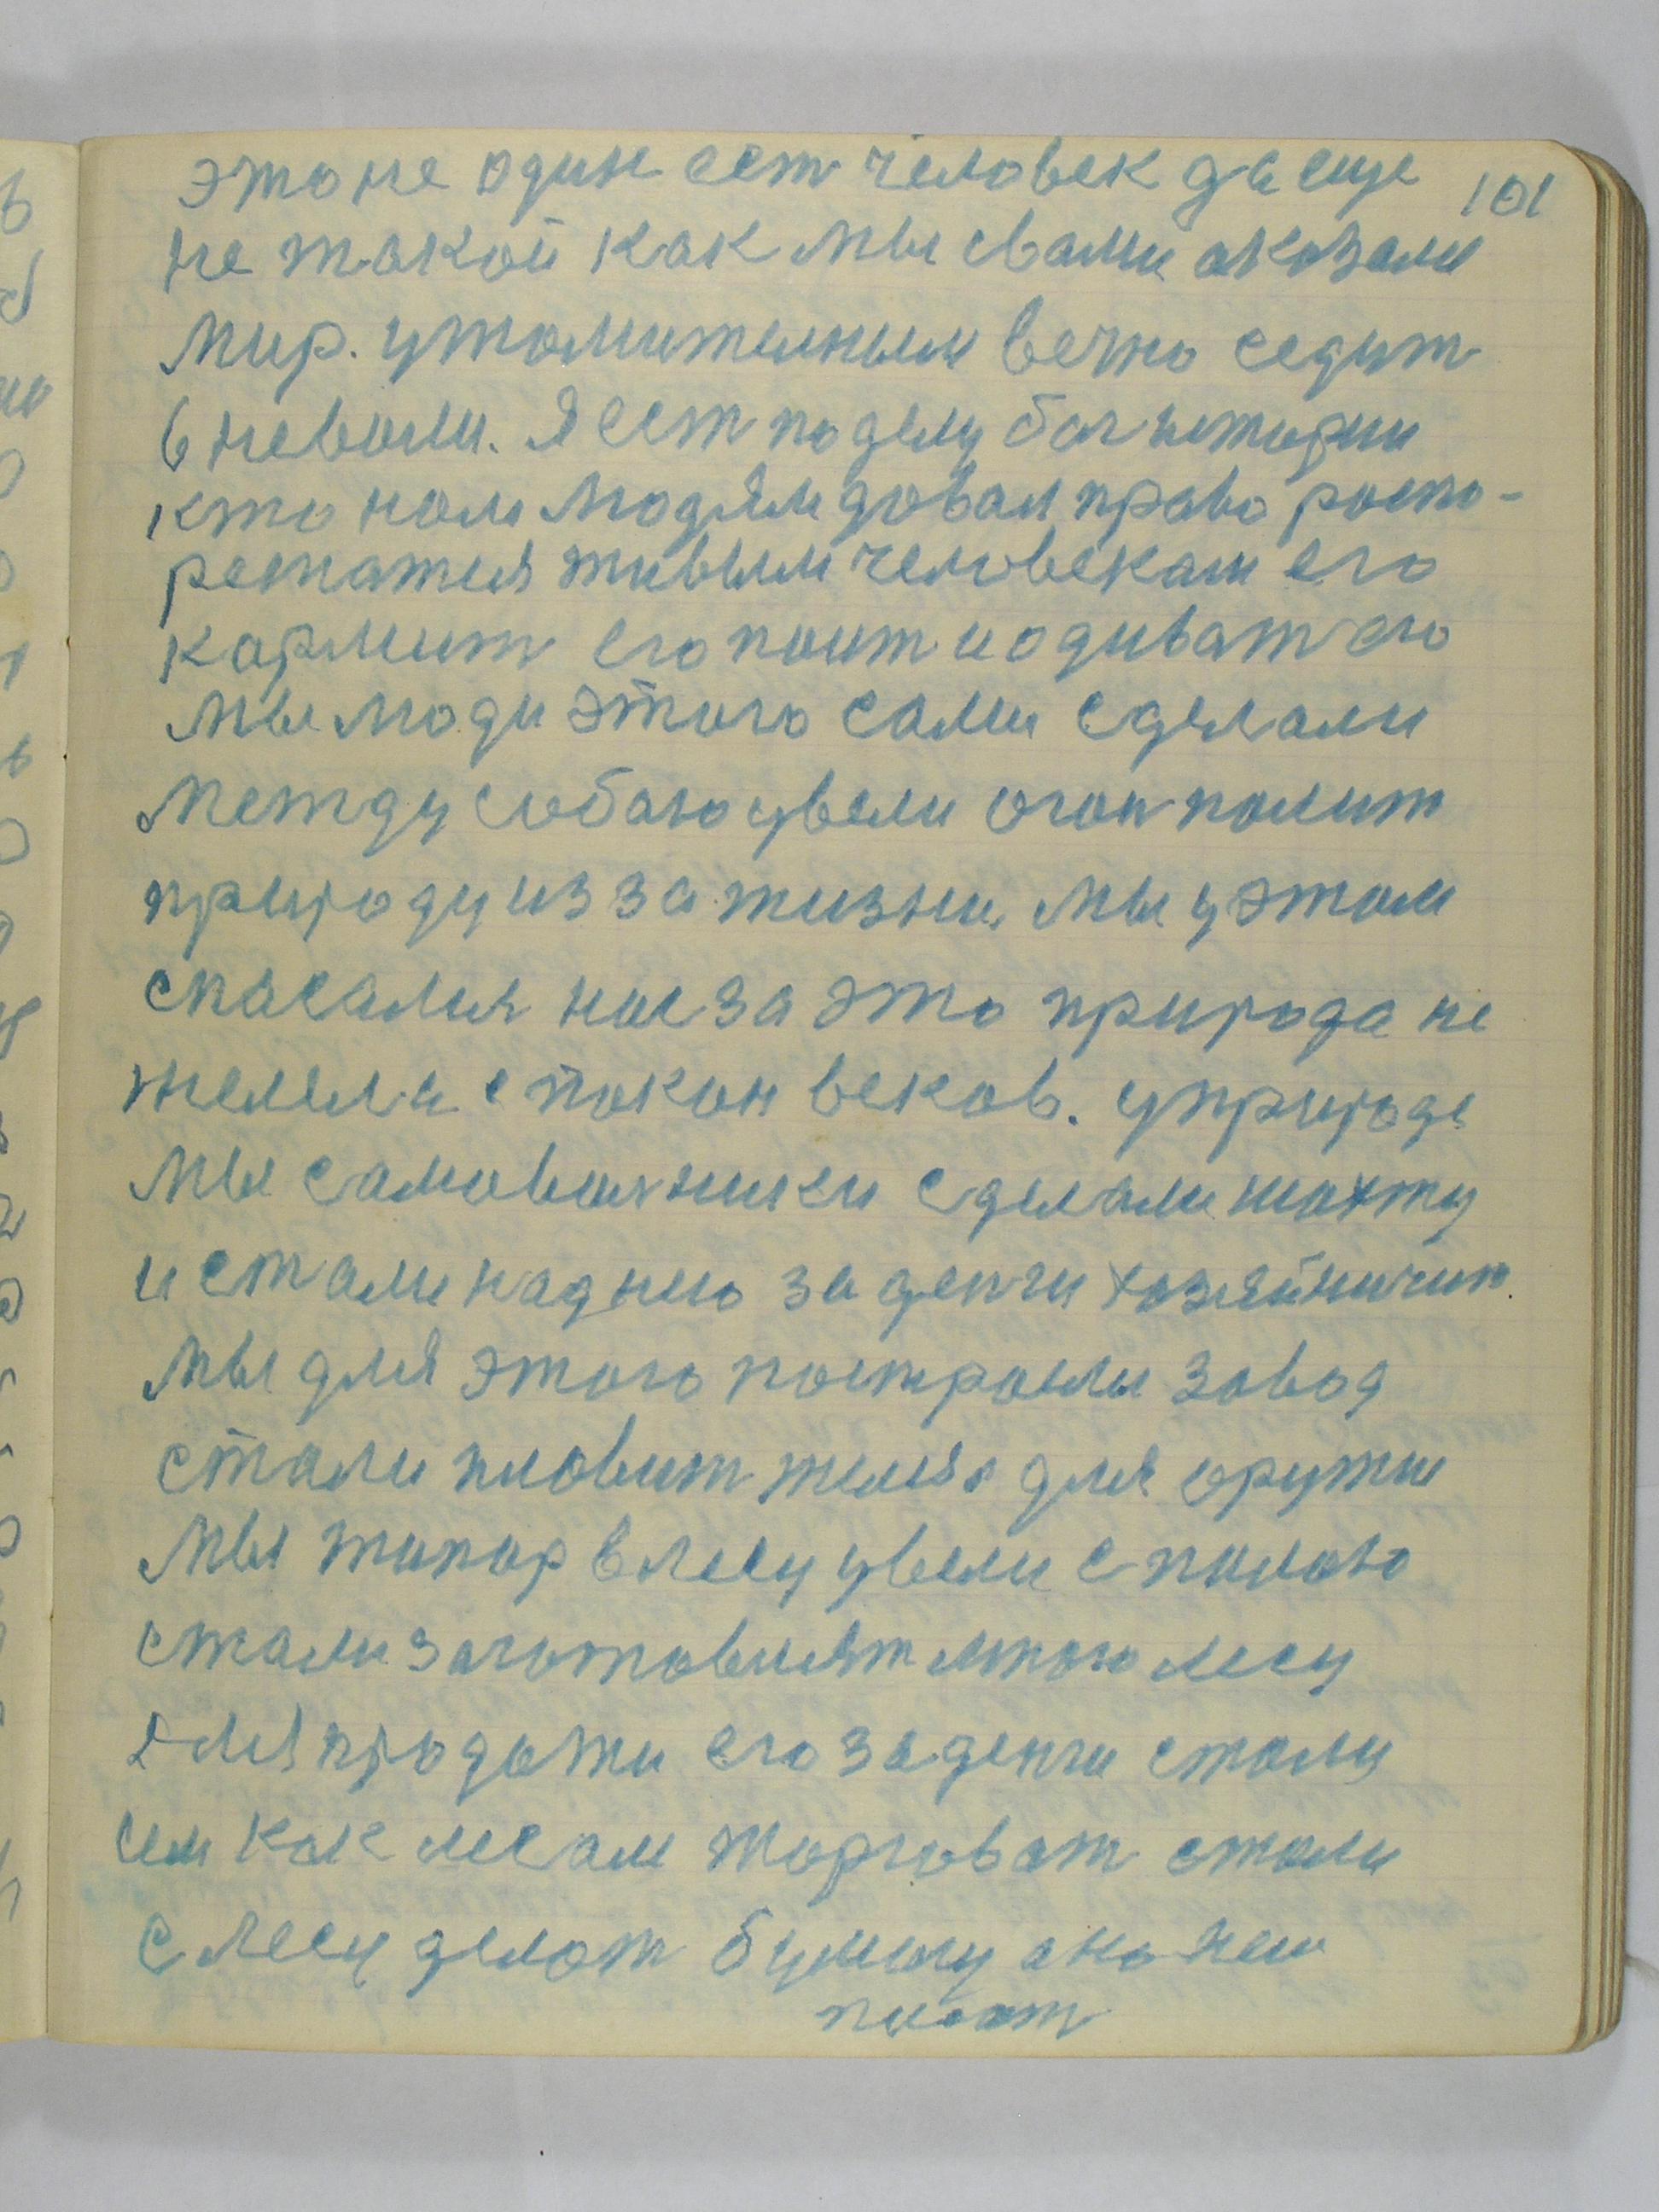 101
это не один ест человек да еще
не такой как мы свами оказали
мир. утомителным вечно седит
в неволи. Я ест по делу бог истории
кто нам людям довал право роспо-
режатся живым человекам его
кормит его поит и одиват его
мы люди этого сами сделали
между собою увели огон полит
природу из за жизни. мы у этом
спасалися нас за это природа не
жилела спокон веков. у природе
мы самоволники сделали шахту
и стали над нею за денги хозяйничит
мы для этого построели завод
стали пловит железо для оружие
мы топор в лесу увели с пилою
стали заготовлят много лесу
для продажи его за денги стали
им как лесам торговат стали
с лесу делат бумагу а на ней
писат